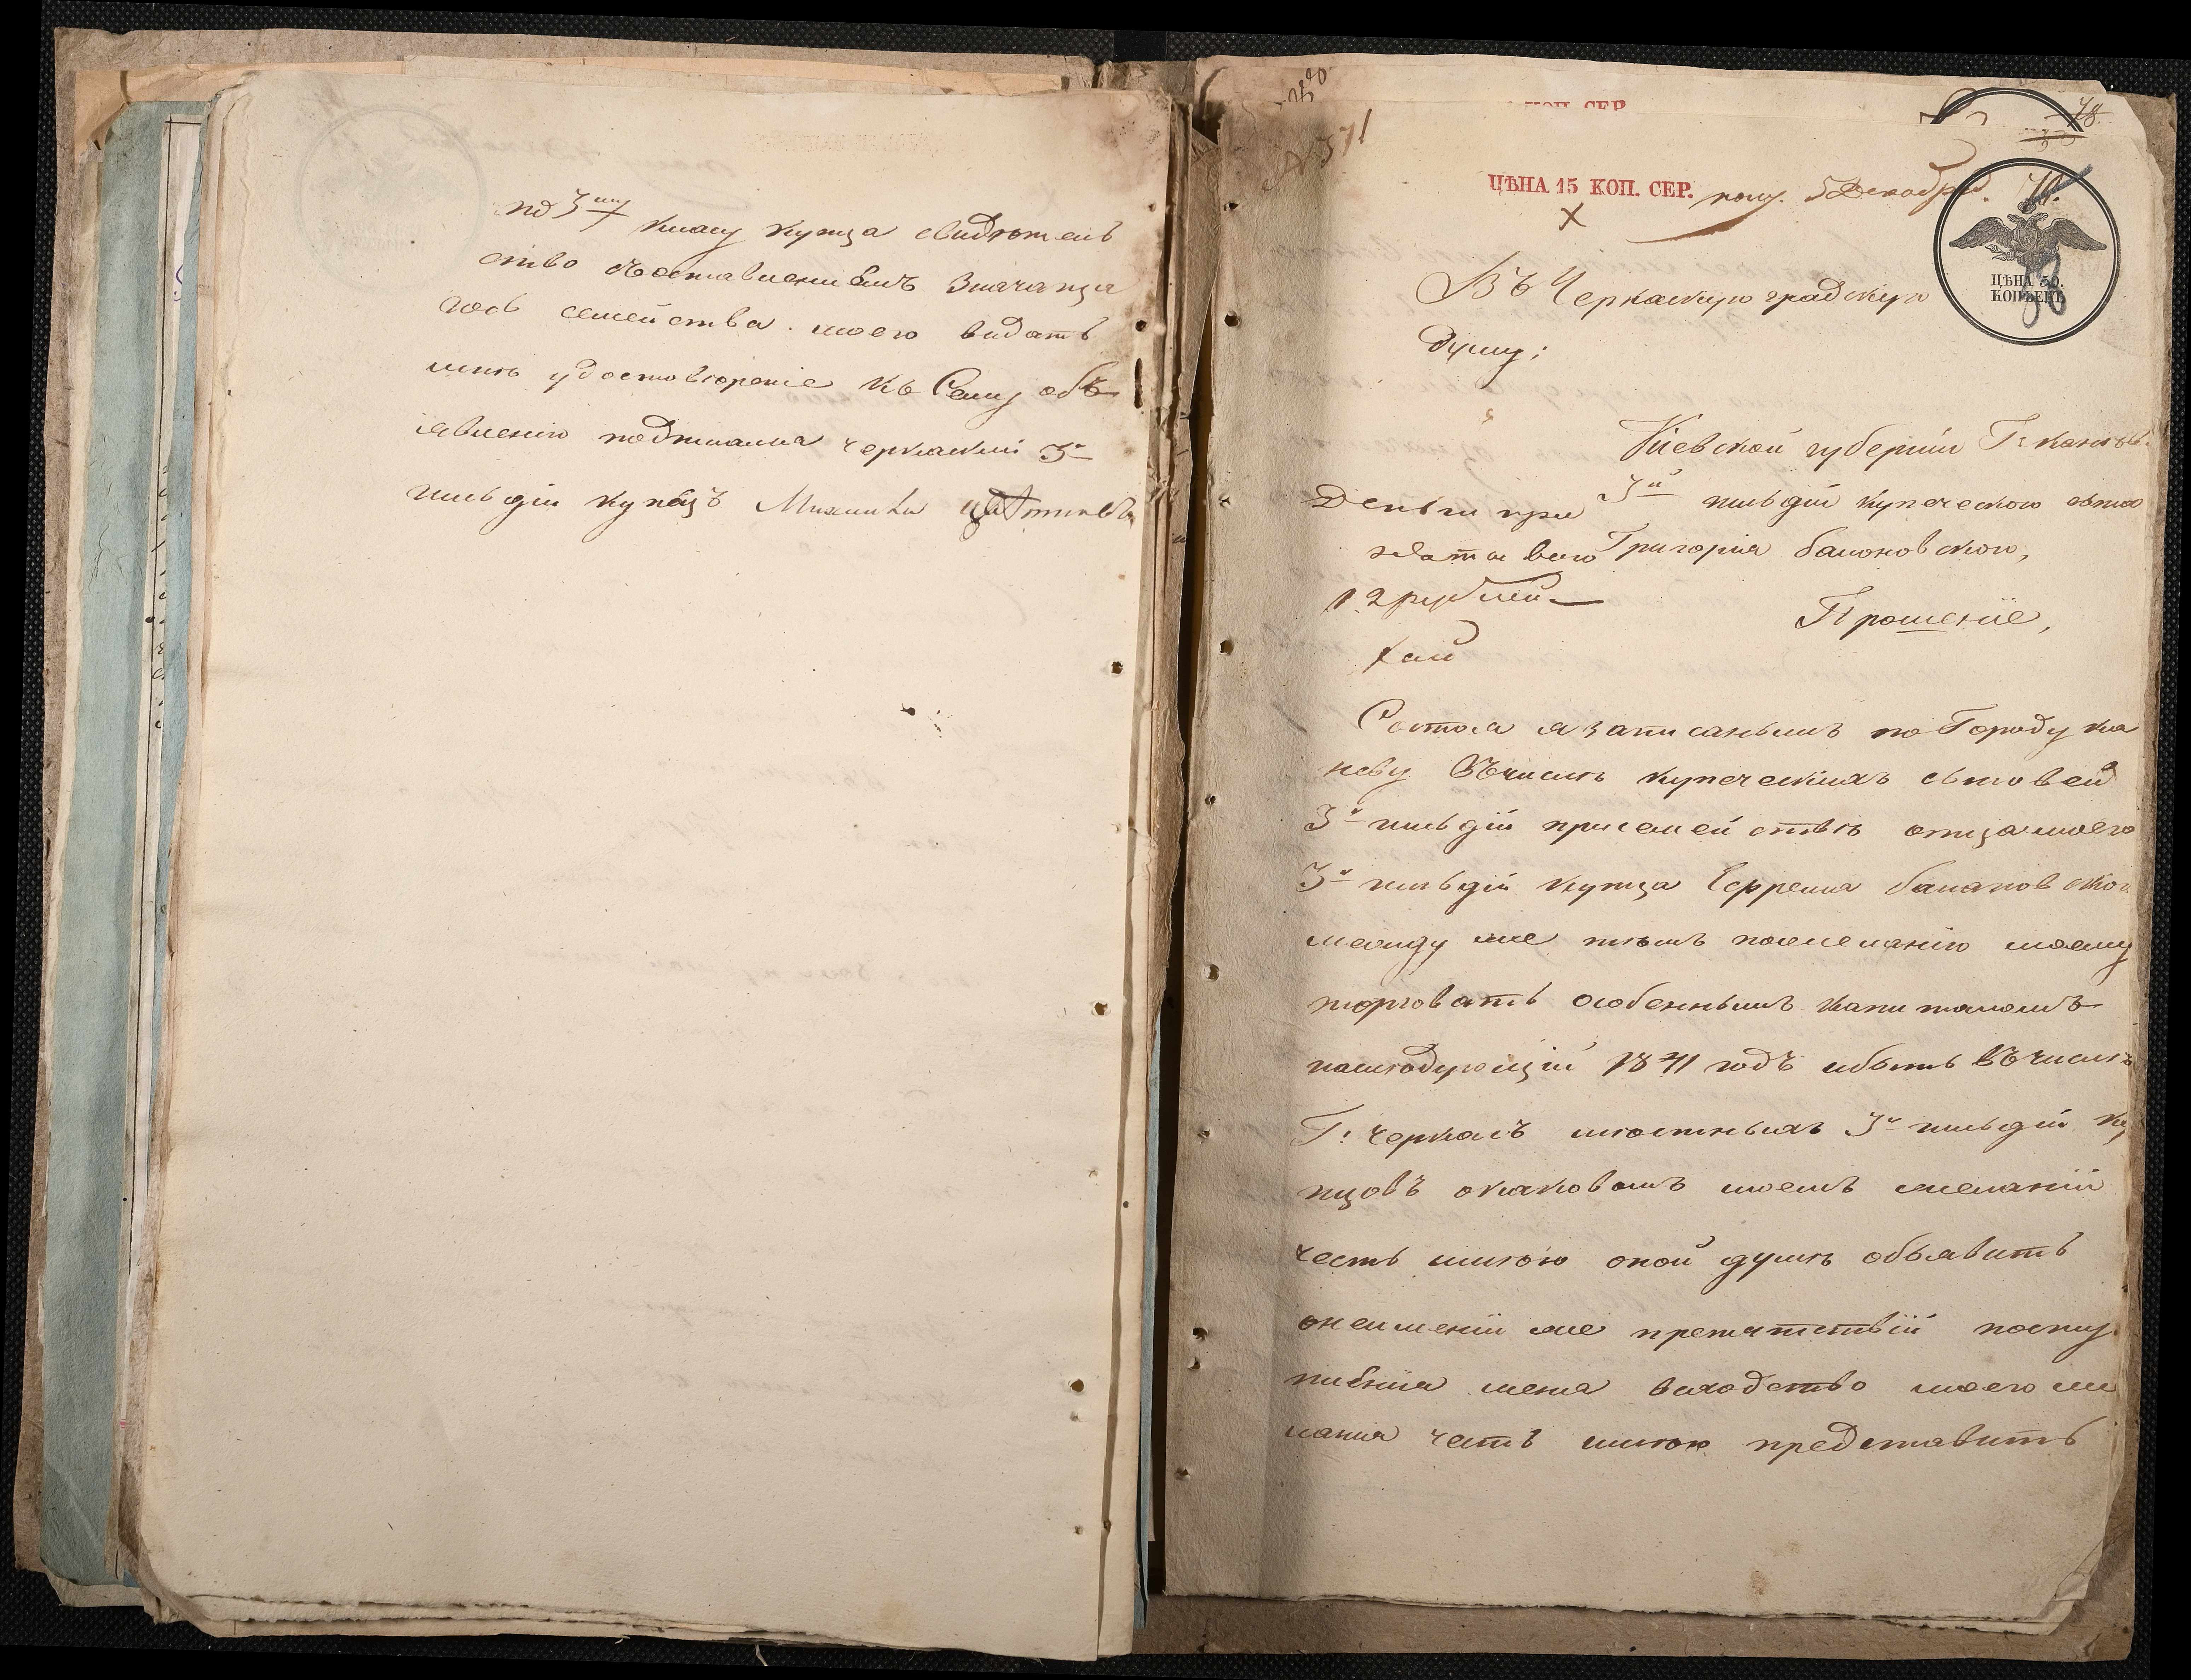 по 3му класу купца свидѣтель
ство съ оставлениемъ значаща
гось семейства моего видать
мнѣ удостовѣреніе къ Сему объ
явленію подписался черкаский 3й
гильдіи купецъ
№ 571
КОП. СЕР.
78
ЦѢНА 15 КОП. СЕР. полу. 5 Декабря.
ЦѢНА
КОПѢЕКЪ
Въ Черкаскую градскую
думу;
Кіевской губерніи Г: Канева
3й гильдіи купеческого сына
Григорія Балоновского,
Деньги при
12 рублей
Прошеніе,
Состоя я записанымъ по Городу Ка
неву Въ числѣ купеческихъ сыновей
3й гильдіи при семействѣ отца моего
3й гильдіи купца Ефрема Балановского
между же тѣмъ по желанію моему
торговать особеннымъ капиталомъ
наслѣдующій 1871 годъ ибыть Въ числѣ
Г: Черкасъ мѣстныхъ 3й гильдіи ку
пцовъ о каковомъ моемъ желаніи
честь имѣю оной думѣ объявить
о неимении же препятствій посту
пления меня
лания честь имѣю представить